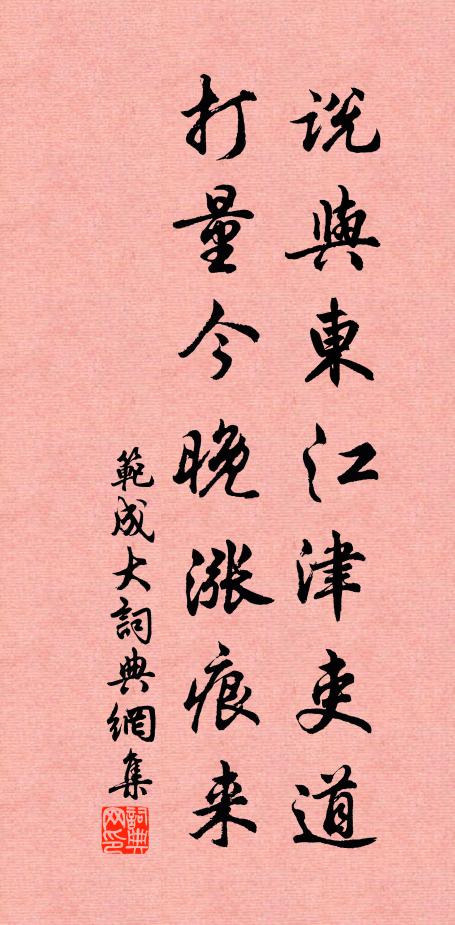 説與東江津吏道
打量今晚漲痕来
範成大詞典網集
詞典网印